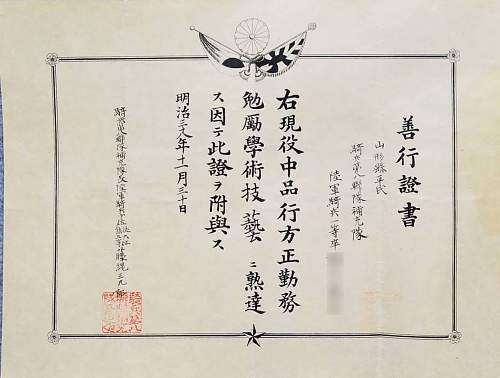 善行證書
山形縣平民
騎兵第八聯隊補充隊
陸軍騎兵一等卒
右現役中品行方正勤務
勉厲學術技藝ニ熟達
ス因テ此證ヲ附與ス
明治三十八年十一月三十日
騎兵第八聯隊補充隊長陸軍騎兵